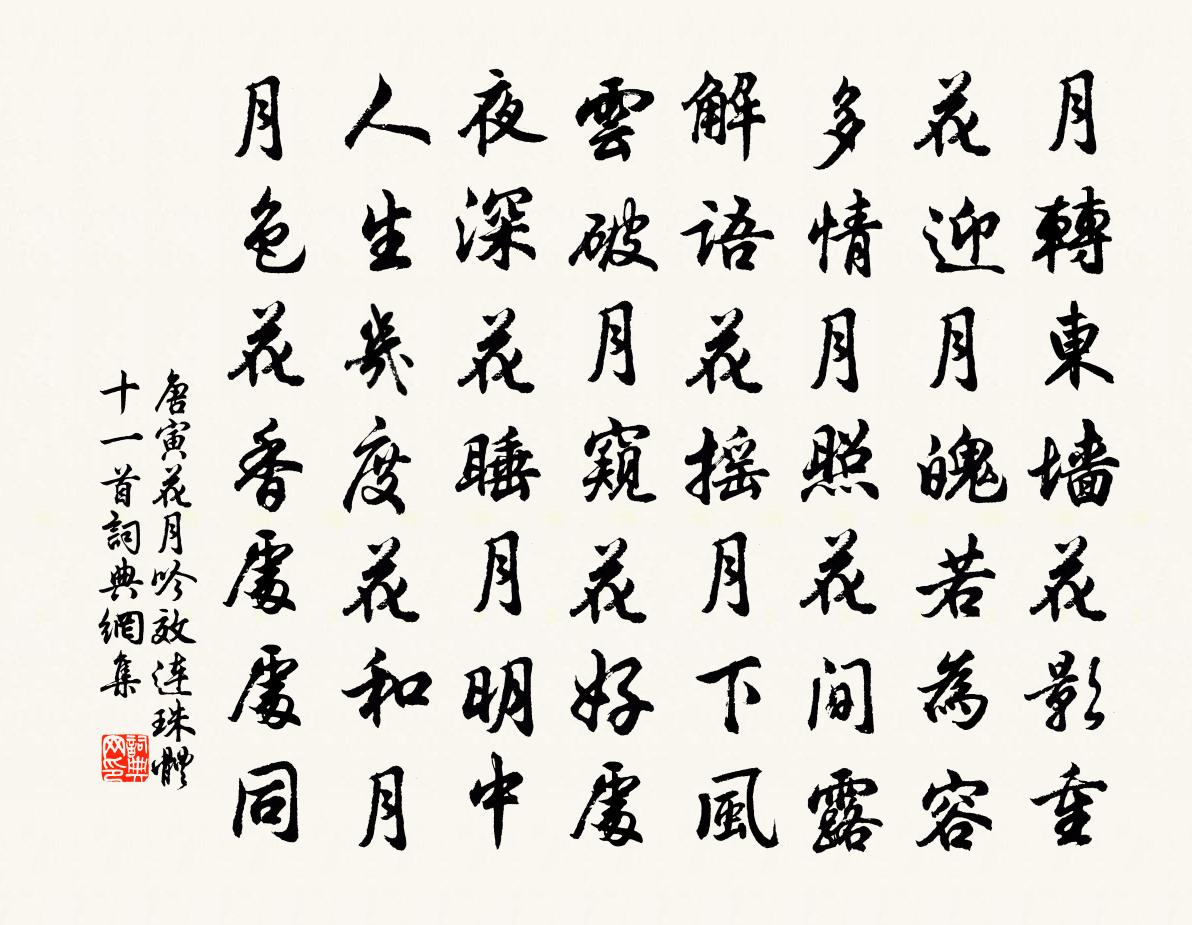 月轉東墻花影重
花迎月魄若為容
多情月照花間露
解語花摇月下風
雲破月窺花好處
夜深花睡月明中
人生幾度花和月
月色花香處處同
唐寅花月吟效连珠體
十一首詞典網集
詞典
网印